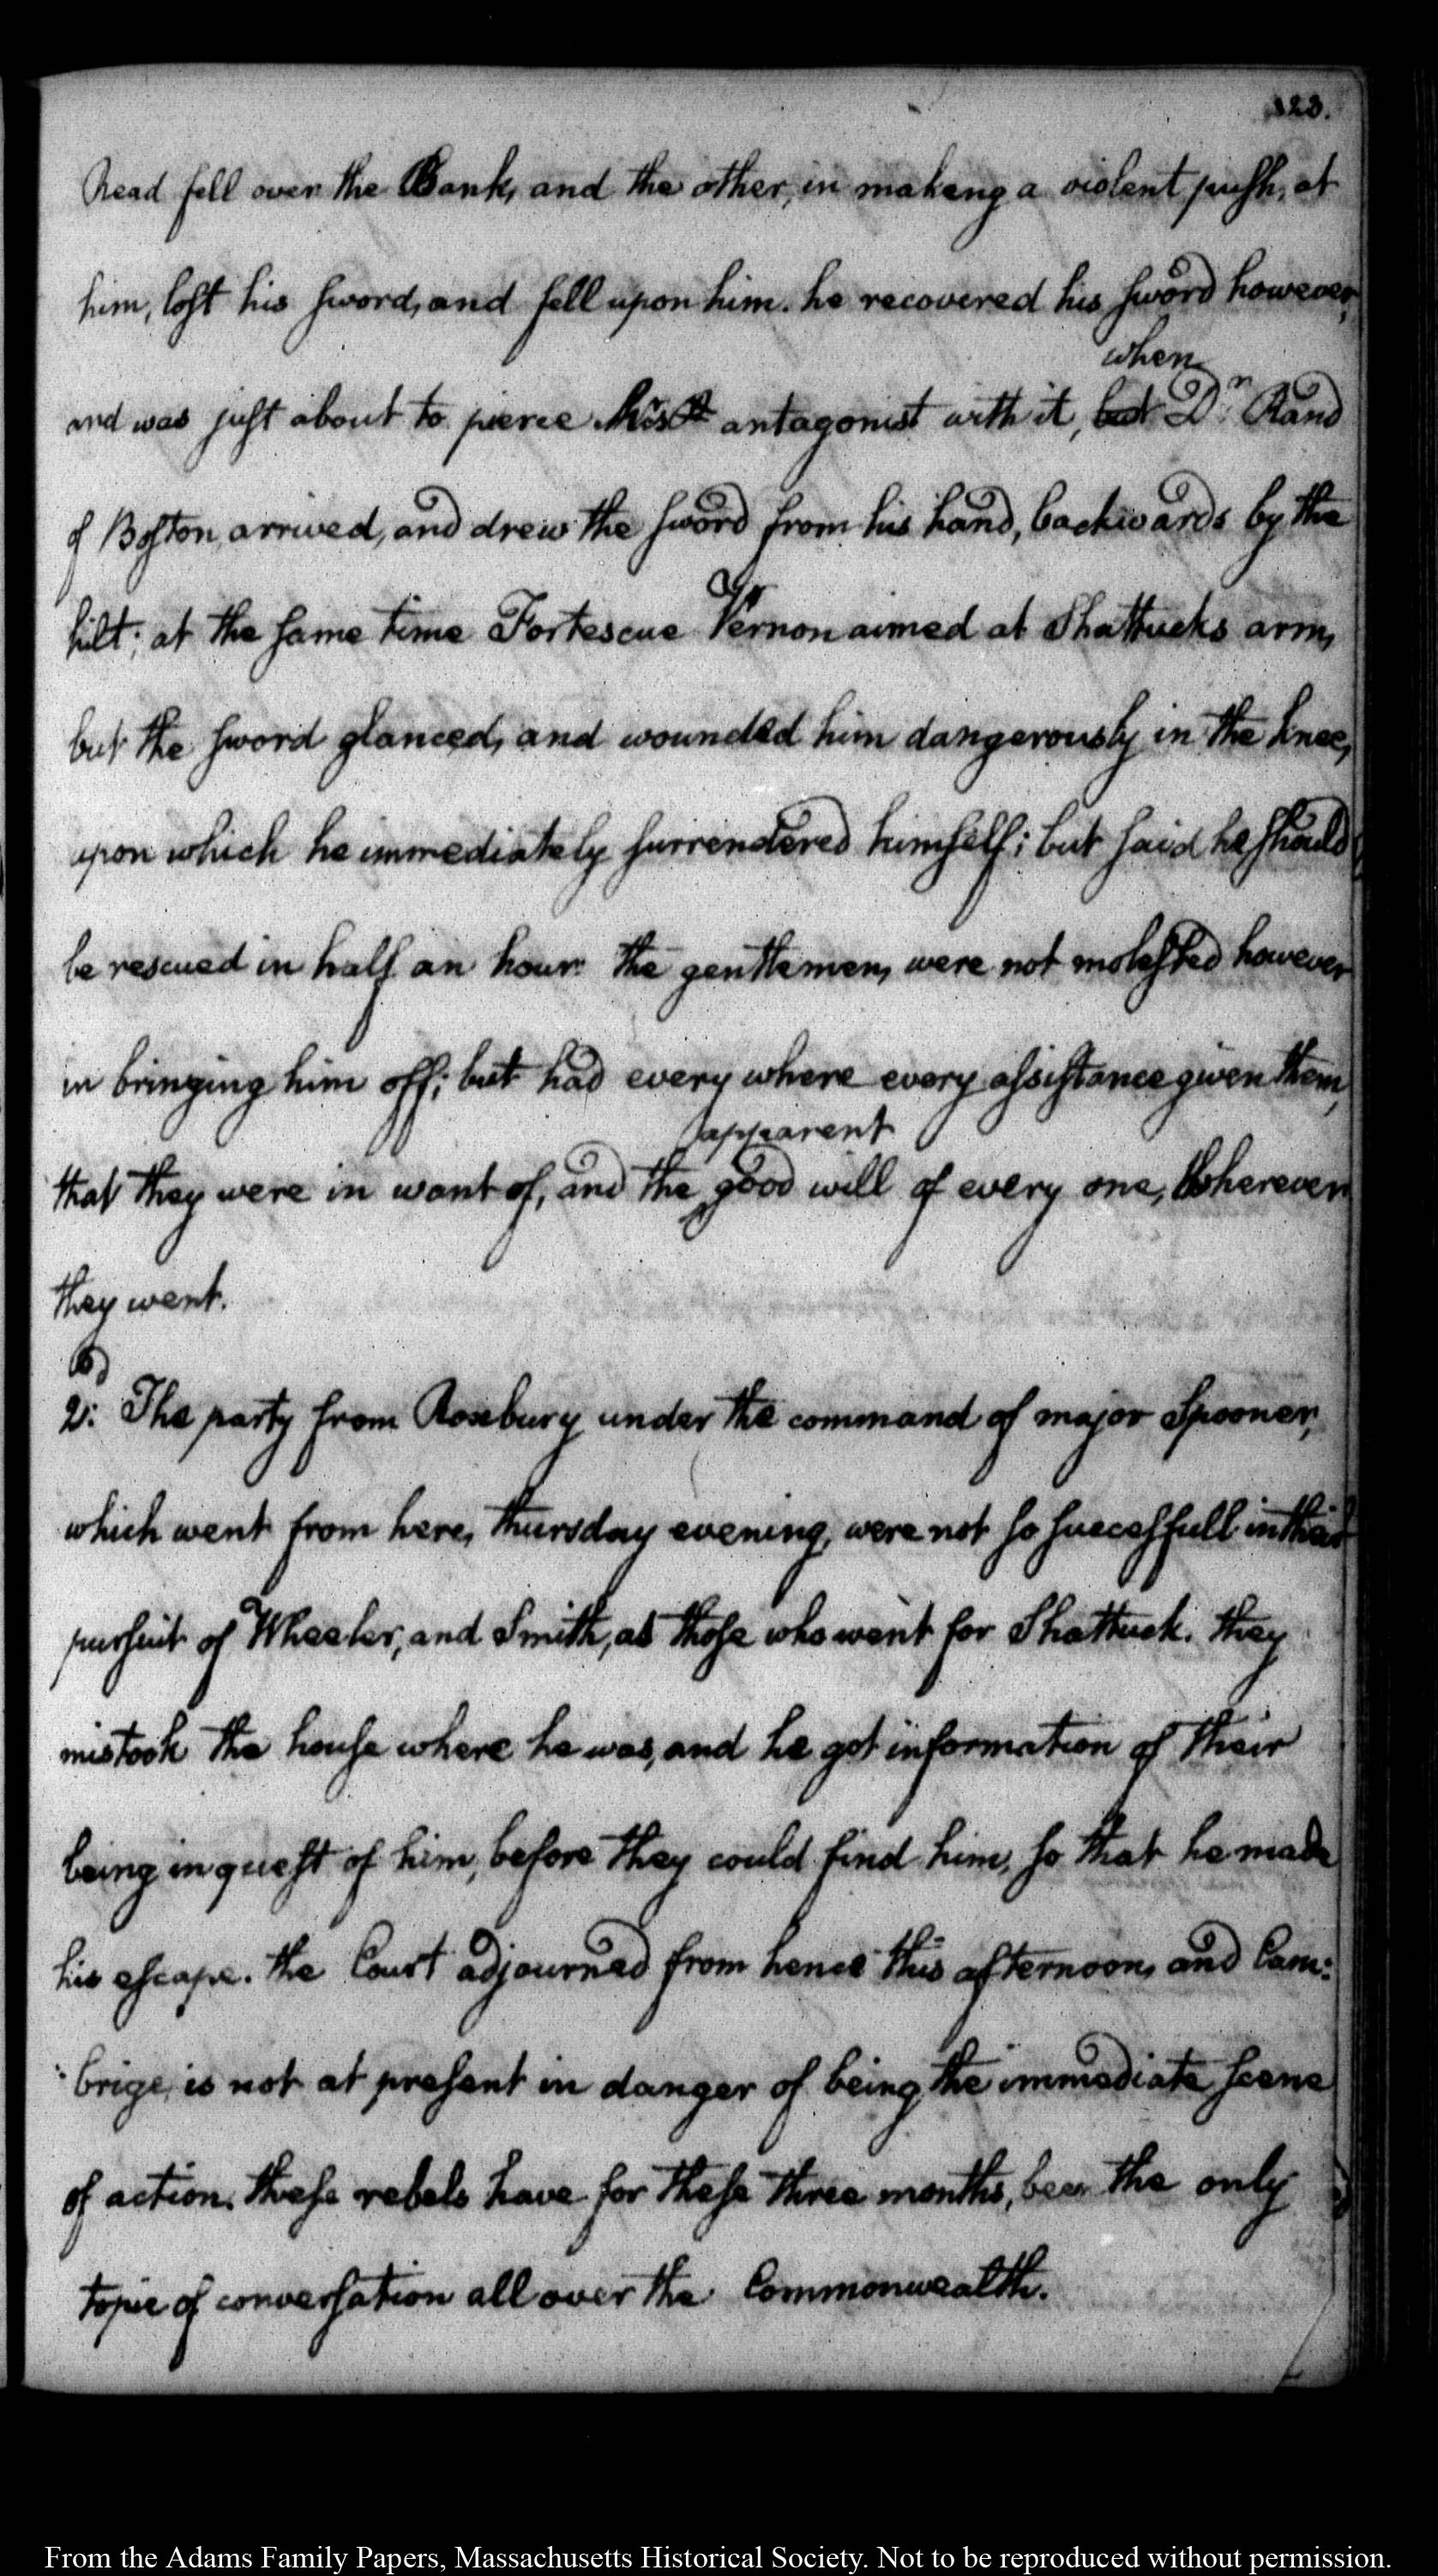 323.
Read fell over the Bank, and the other, in makeng a violent push, at
him, lost his sword, and fell upon him. he recovered his sword however,
when
and was just about to pierce his antagonist with it, but Dr. Rand
of Boston, arrived, and drew the sword from his hand, backwards by the
hilt: at the same time Fortescue Vernon aimed at Shattucks arm,
but the sword glanced, and wounded him dangerously in the knee,
upon which he immediately surrendered himself; but said he should
be rescued in half an hour: The gentlemen, were not molested however
in bringing him off; but had every where every assistance given them,
apparent
that they were in want of, and the good will of every one, wherever
they went.
2: The party from Roxbury under the command of major Spooner,
which went from here, thursday evening, were not so successfull in their
pursuit of Wheeler, and Smith, as those who went for Shattuck. they
mistook the house where he was, and he got information of their
being in quest of him, before they could find him, so that he made
his escape. the Court adjourned from hence this afternoon, and Cam:
:brige, is not at present in danger of being the immediate scene
of action. these rebels have for these three months, been the only
topic of conversation all over the Commonwealth.
From the Adams Family Papers, Massachusetts Historical Society. Not to be reproduced without permission.